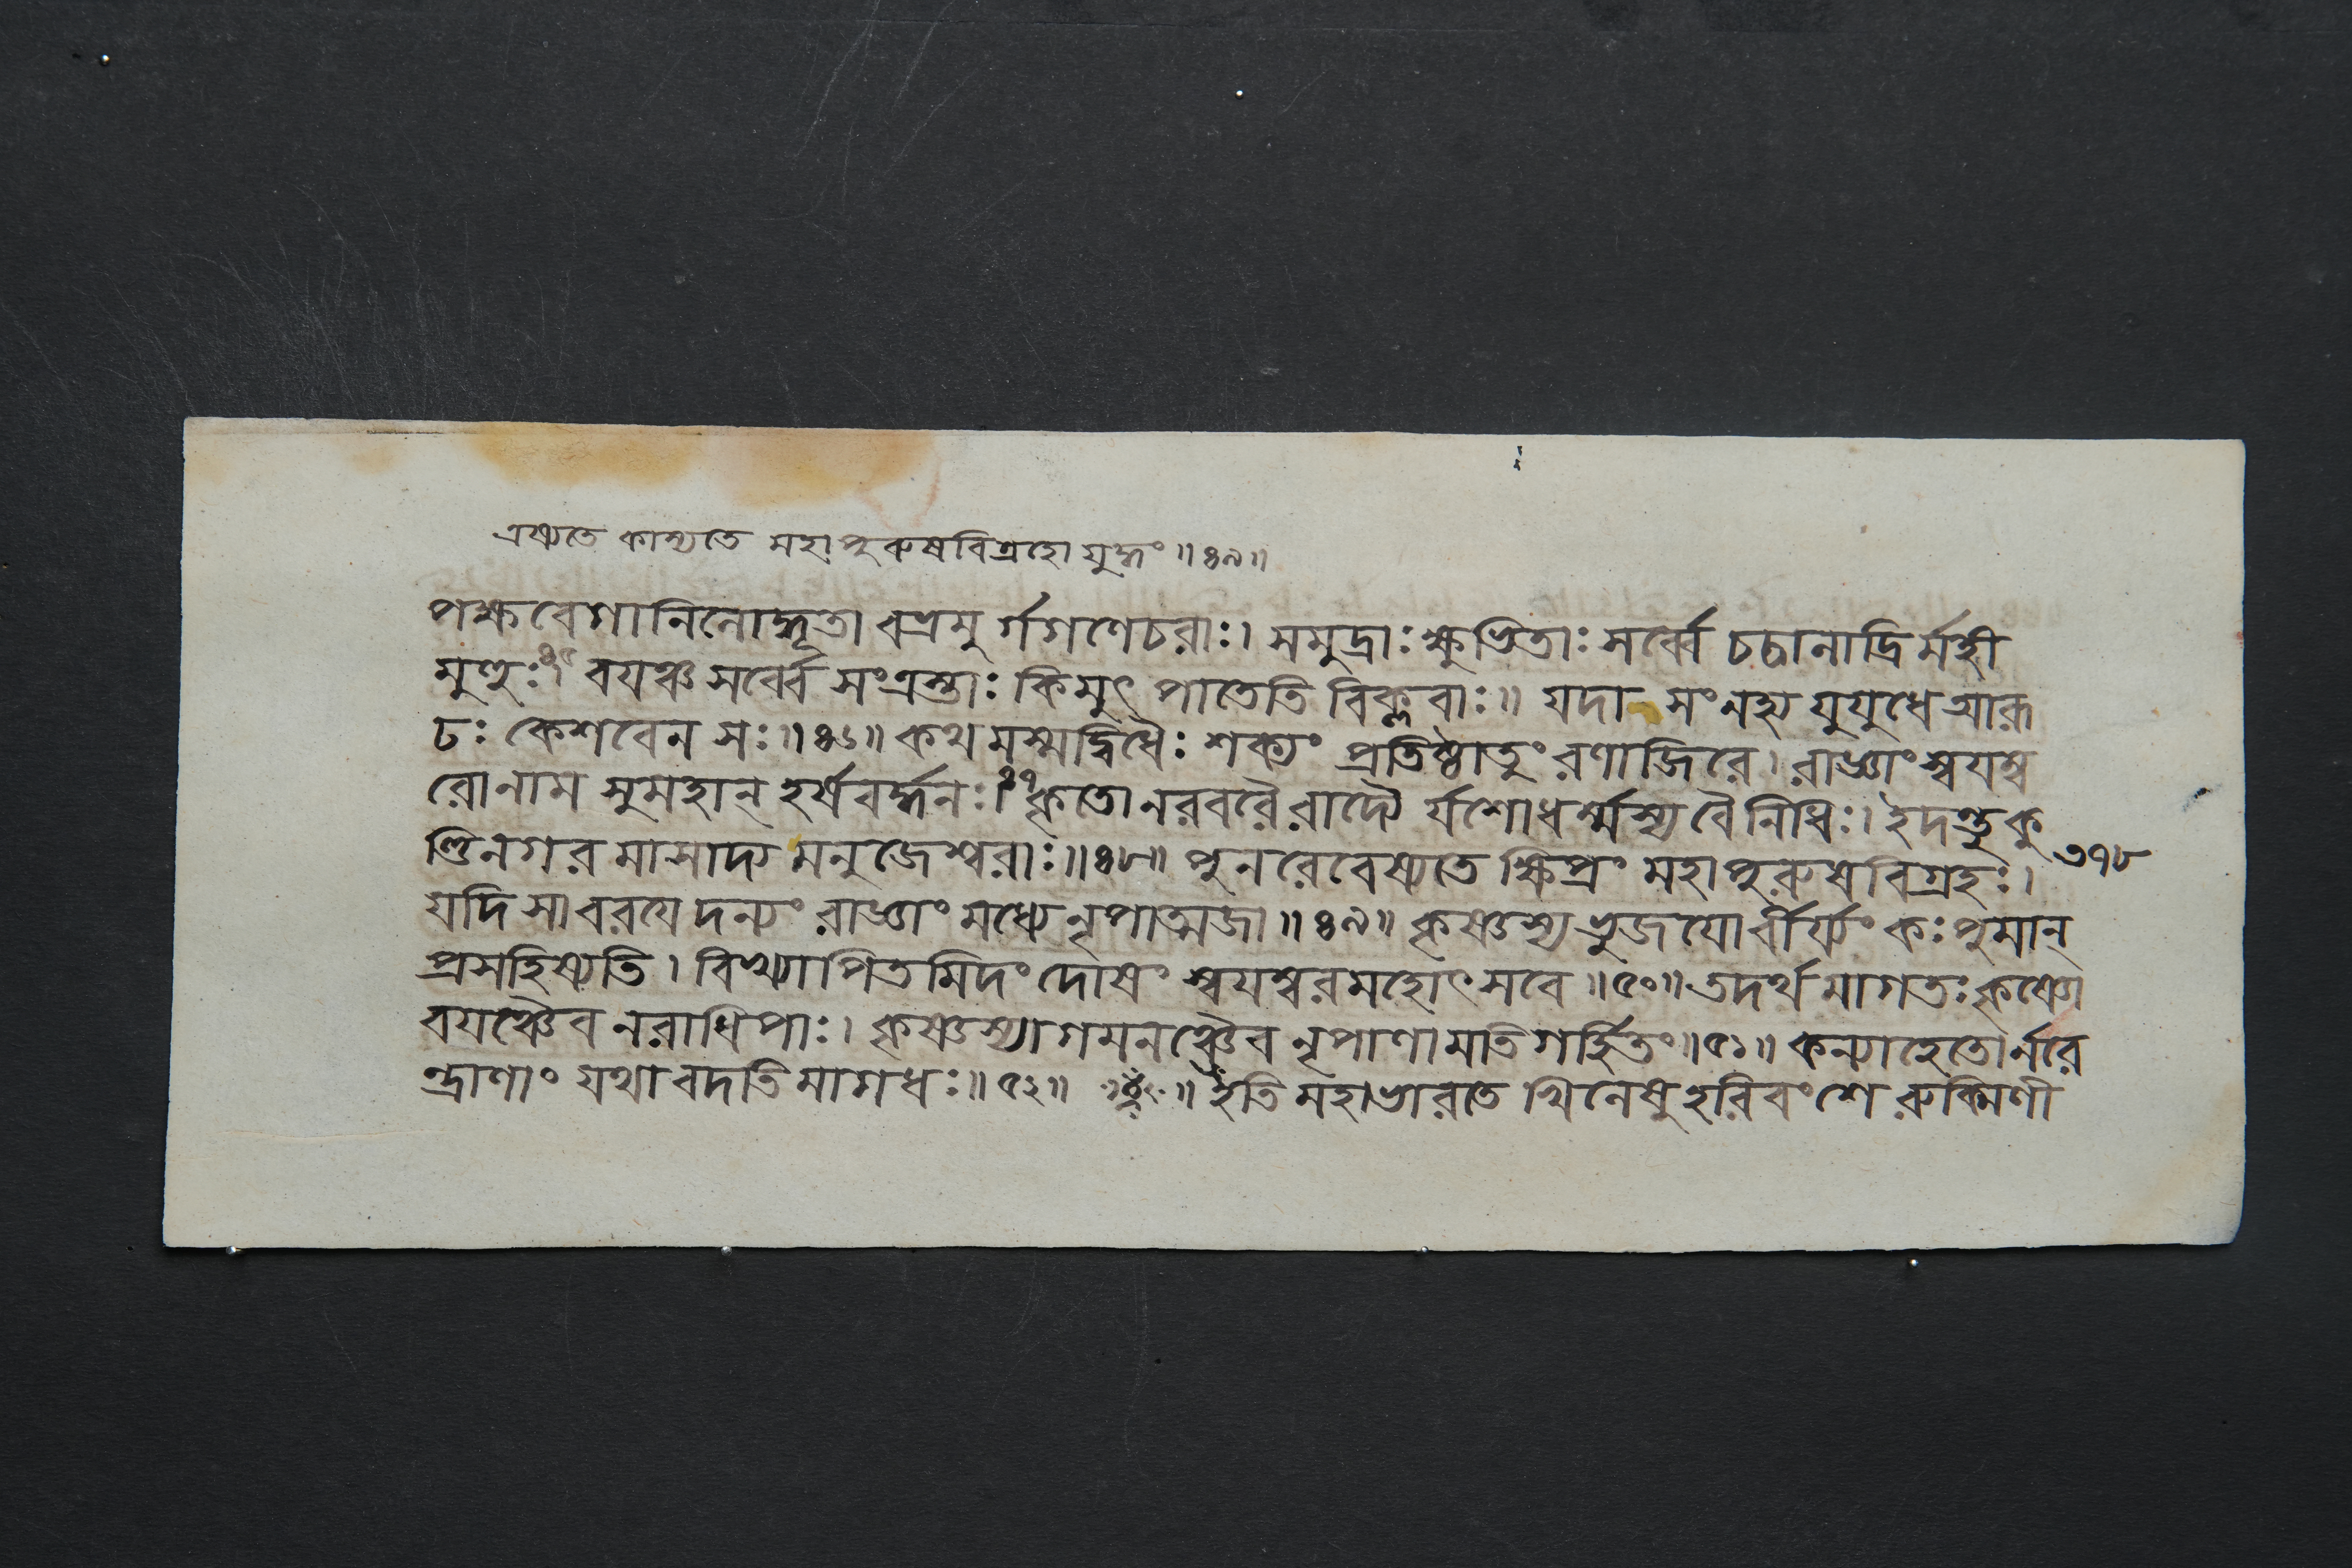 এষ্যতে কাম্যতে মহাপুরুষবিগ্রহো যুদ্ধং ॥ ৪৯ ॥
পক্ষবেগানিলোদ্ধূতা বভ্রমুর্গগণেচরাঃ। সমুদ্রাঃ ক্ষুভিতাঃ সর্ব্বে চচালাদ্রির্মহী
মুহুঃ।৪৫ বযঞ্চ সর্ব্বে সংত্রস্তাঃ কিমুৎপাতেতি বিক্লবাঃ॥ যদা সংনহ্য যুযুধে আরূ
ঢঃ কেশবেন সঃ॥ ৪৬॥ কথমস্মদ্বিধৈঃ শক্যং প্রতিষ্ঠাতুং রণাজিরে। রাজ্ঞাং স্বযম্ব
রোনাম সুমহান্ হর্ষবর্দ্ধনঃ।৪৭ কৃতোনরবরৈরাদ্যৈ র্যশোধর্ম্মস্য বৈ নিধিঃ। ইদন্তু কু
ণ্ডিনগরমাসাদ্য মনুজেশ্বরাঃ॥ ৪৮॥ পুনরেবেষ্যতে ক্ষিপ্রং মহাপুরুষবিগ্রহঃ। ৩৭৮
যদি সা বরযেদন্যং রাজ্ঞাং মধ্যে নৃপাত্মজা ॥ ৪৯ ॥ কৃষ্ণস্য ভুজযোর্বীর্য্যং কঃ পুমান্
প্রসহিষ্যতি। বিখ্যাপিতমিদং দোষং স্বযম্বরমহোৎসবে ॥ ৫০॥ তদর্থমাগতঃ কৃষ্ণো
বযঞ্চৈব নরাধিপাঃ। কৃষ্ণস্যাগমনঞ্চৈব নৃপাণামতিগর্হিতং॥ ৫১॥ কন্যাহেতোর্নরে
ন্দ্রাণাং যথা বদতি মাগধঃ॥ ৫২॥ ॥ ইতি মহাভারতে খিলেষু হরিবংশে রুক্মিণী